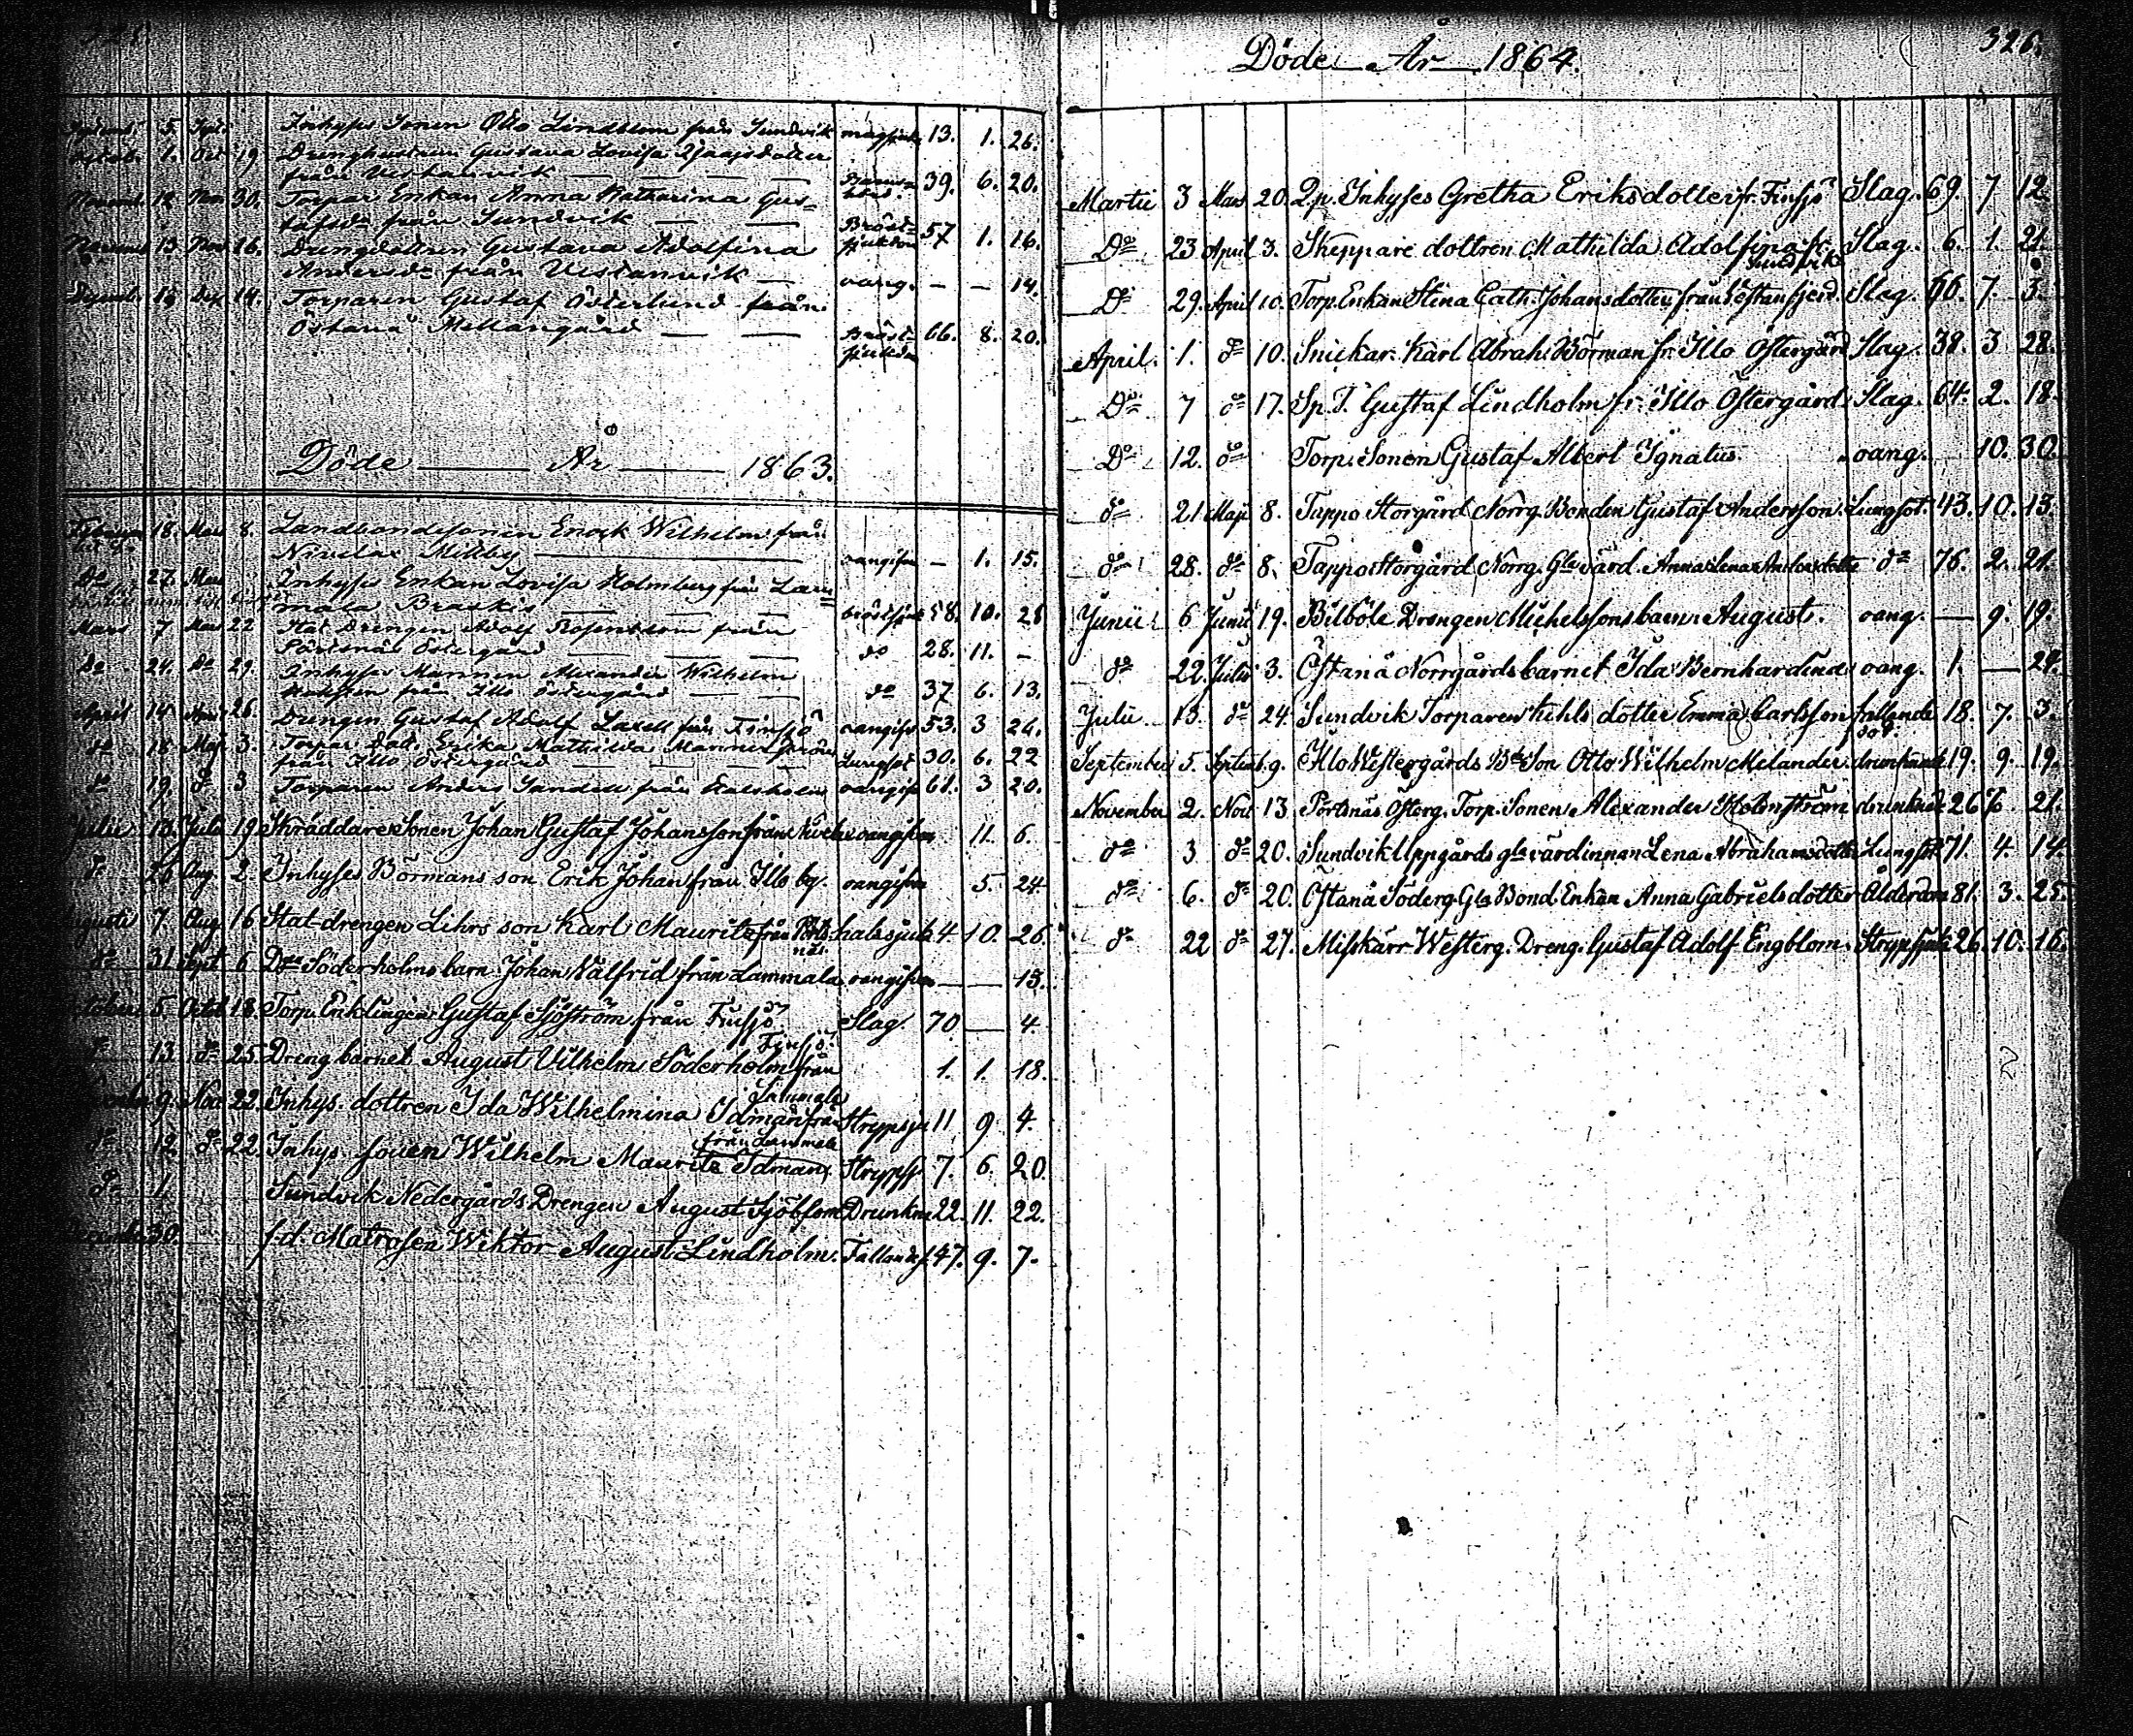 Inhyses Sonen Otto Lindblom från Sundvik 13. 1. 26.
1. Oct 19 Drenghustrun Gustava Lovisa
från Vestanvik 39. 6. 20.
30. Torpar Enkan Anna Katharina Gus-
tafsdr från Sundvik Bröst- 57 1. 16.
13. Nov 16. Drengdottren Gustava Adolfina
Andersdr från Vestanvik oang. - - 14.
14. Torparen Gustaf Österlund från
Östanå Mellangård Bröst- 66. 8. 20.
Döde År 1863.
18. Mars 8. Landbondesonen Enock Wilhelm från
Nivelax Millby oangifven - 1. 15.
Do 27. Mars Inhyses Enkan Lovisa Holmberg från Lam-
mala Braskis 58. 10. 28
Mars 7 Mars 22 Stat Drengen Adolf från
Pörtsnäs Östergård do 28. 11. -
Do 24. Do 29. Inhyses Mannen Alexander Wilhelm
från Illo Östergård do 37 6. 13.
April 14 April 26. Drengen Gustaf Adolf Laxell från Finsjö oangifven 53. 3 26.
do 18 Maj 3. Torpar Dod. Erika Mathilda
från Illo Östergård Lungsot 30. 6. 22
do 19. do 3 Torparen Anders Sandell från oangif 61. 3 20.
Julii 13. Julii 19. Skräddare Sonen Johan Gustaf Johansson från oangifven 11. 6.
do 26 Aug. 2. Inhyses Börmans son Erik Johan från Illo by. oangifven 5. 24
7 Aug 16 Stat-drengen Lihrs son Karl Mauritz från halssjuk 4 10. 26.
do 31. Sept 6 Söderholms barn Johan Walfrid från Lammala oangifven 13.
October 5. Octob 18. Torp. Enklingen Gustaf Sjöström från Finsjö Slag. 70 — 4.
do 13 do 25. Drengbarnet August Vilhelm Söderholm från Finsjö 1. 1. 18.
9. Nov 22. Inhys. dottren Ida Wilhelmina Idman från Lammala Strypsju 11 9 4.
do 12. do 22. Inhys. sonen Wilhelm Mauritz Idman, från Lammala Strypsj 7. 6. 20.
do 1. Sundvik Nedergårds Drengen August Sjöblom Drunkn 22. 11. 22.
30. f.d. Matrosen Wiktor August Lindholm. Fallandes. 47. 9. 7.
326.
Döde År 1864.
Martii 3 Mars 20. Inhyses Gretha Eriksdotter fr. Finsjö Slag. 69. 7 12.
Do 23 April 3. Skeppare dottren Mathilda Adolfina fr. Sundvik Slag. 6. 1. 21.
Do 29. April 10. Torp. Enkan Stina Cath. Johansdotter från Vestanfjerd. Slag. 66. 7. 3.
April. 1. do 10. Snickar. Karl Abrah. Börman fr. Illo Östergård Slag. 38. 3 28.
Do 7 do 17. Gustaf Lindholm fr. Illo Östergård Slag. 64. 2. 18.
Do 12. do Torp. Sonen Gustaf Albert Ignatius. oang. 10. 30.
do 21 Maji 8. Tappo Storgård Norrg. Bonden Gustaf Andersson. Lungsot. 43. 10. 13.
do 28. do 8. Tappo Storgård Norrg. Gla värd. Anna Lena Andersdotter do 76. 2. 21.
Junii 6 Junii 19. Bilböle Drengen Michelssons barn August. oang. — 9. 19.
do 22. Julii 3. Östanå Norrgårds barnet Ida Bernhardina oang. 1. — 24.
Julii 13. do 24. Sundvik Torparen Kihls dotter Emma Carlsson fallandesot. 18. 7. 3.
September 5. Septemb. 9. Illo Westergårds Bde Son Otto Wilhelm Melander drunknade 19. 9. 19.
November 2. Nov 13. Pörtsnäs Österg. Torp. Sonen Alexander Holmström drunknade 26 6. 21.
do 3 do 20. Sundvik Uppgårds gla värdinnan Lena Abrahamsdotter Lungsot 71. 4. 14.
do 6. do 20. Östanå Söderg. Gla Bond. Enkan Anna Gabrielsdotter Ålderdom 81. 3. 25.
do 22 do 27. Misskärr Westerg. Dreng. Gustaf Adolf Engblom. Strypsjuka 26. 10. 16.